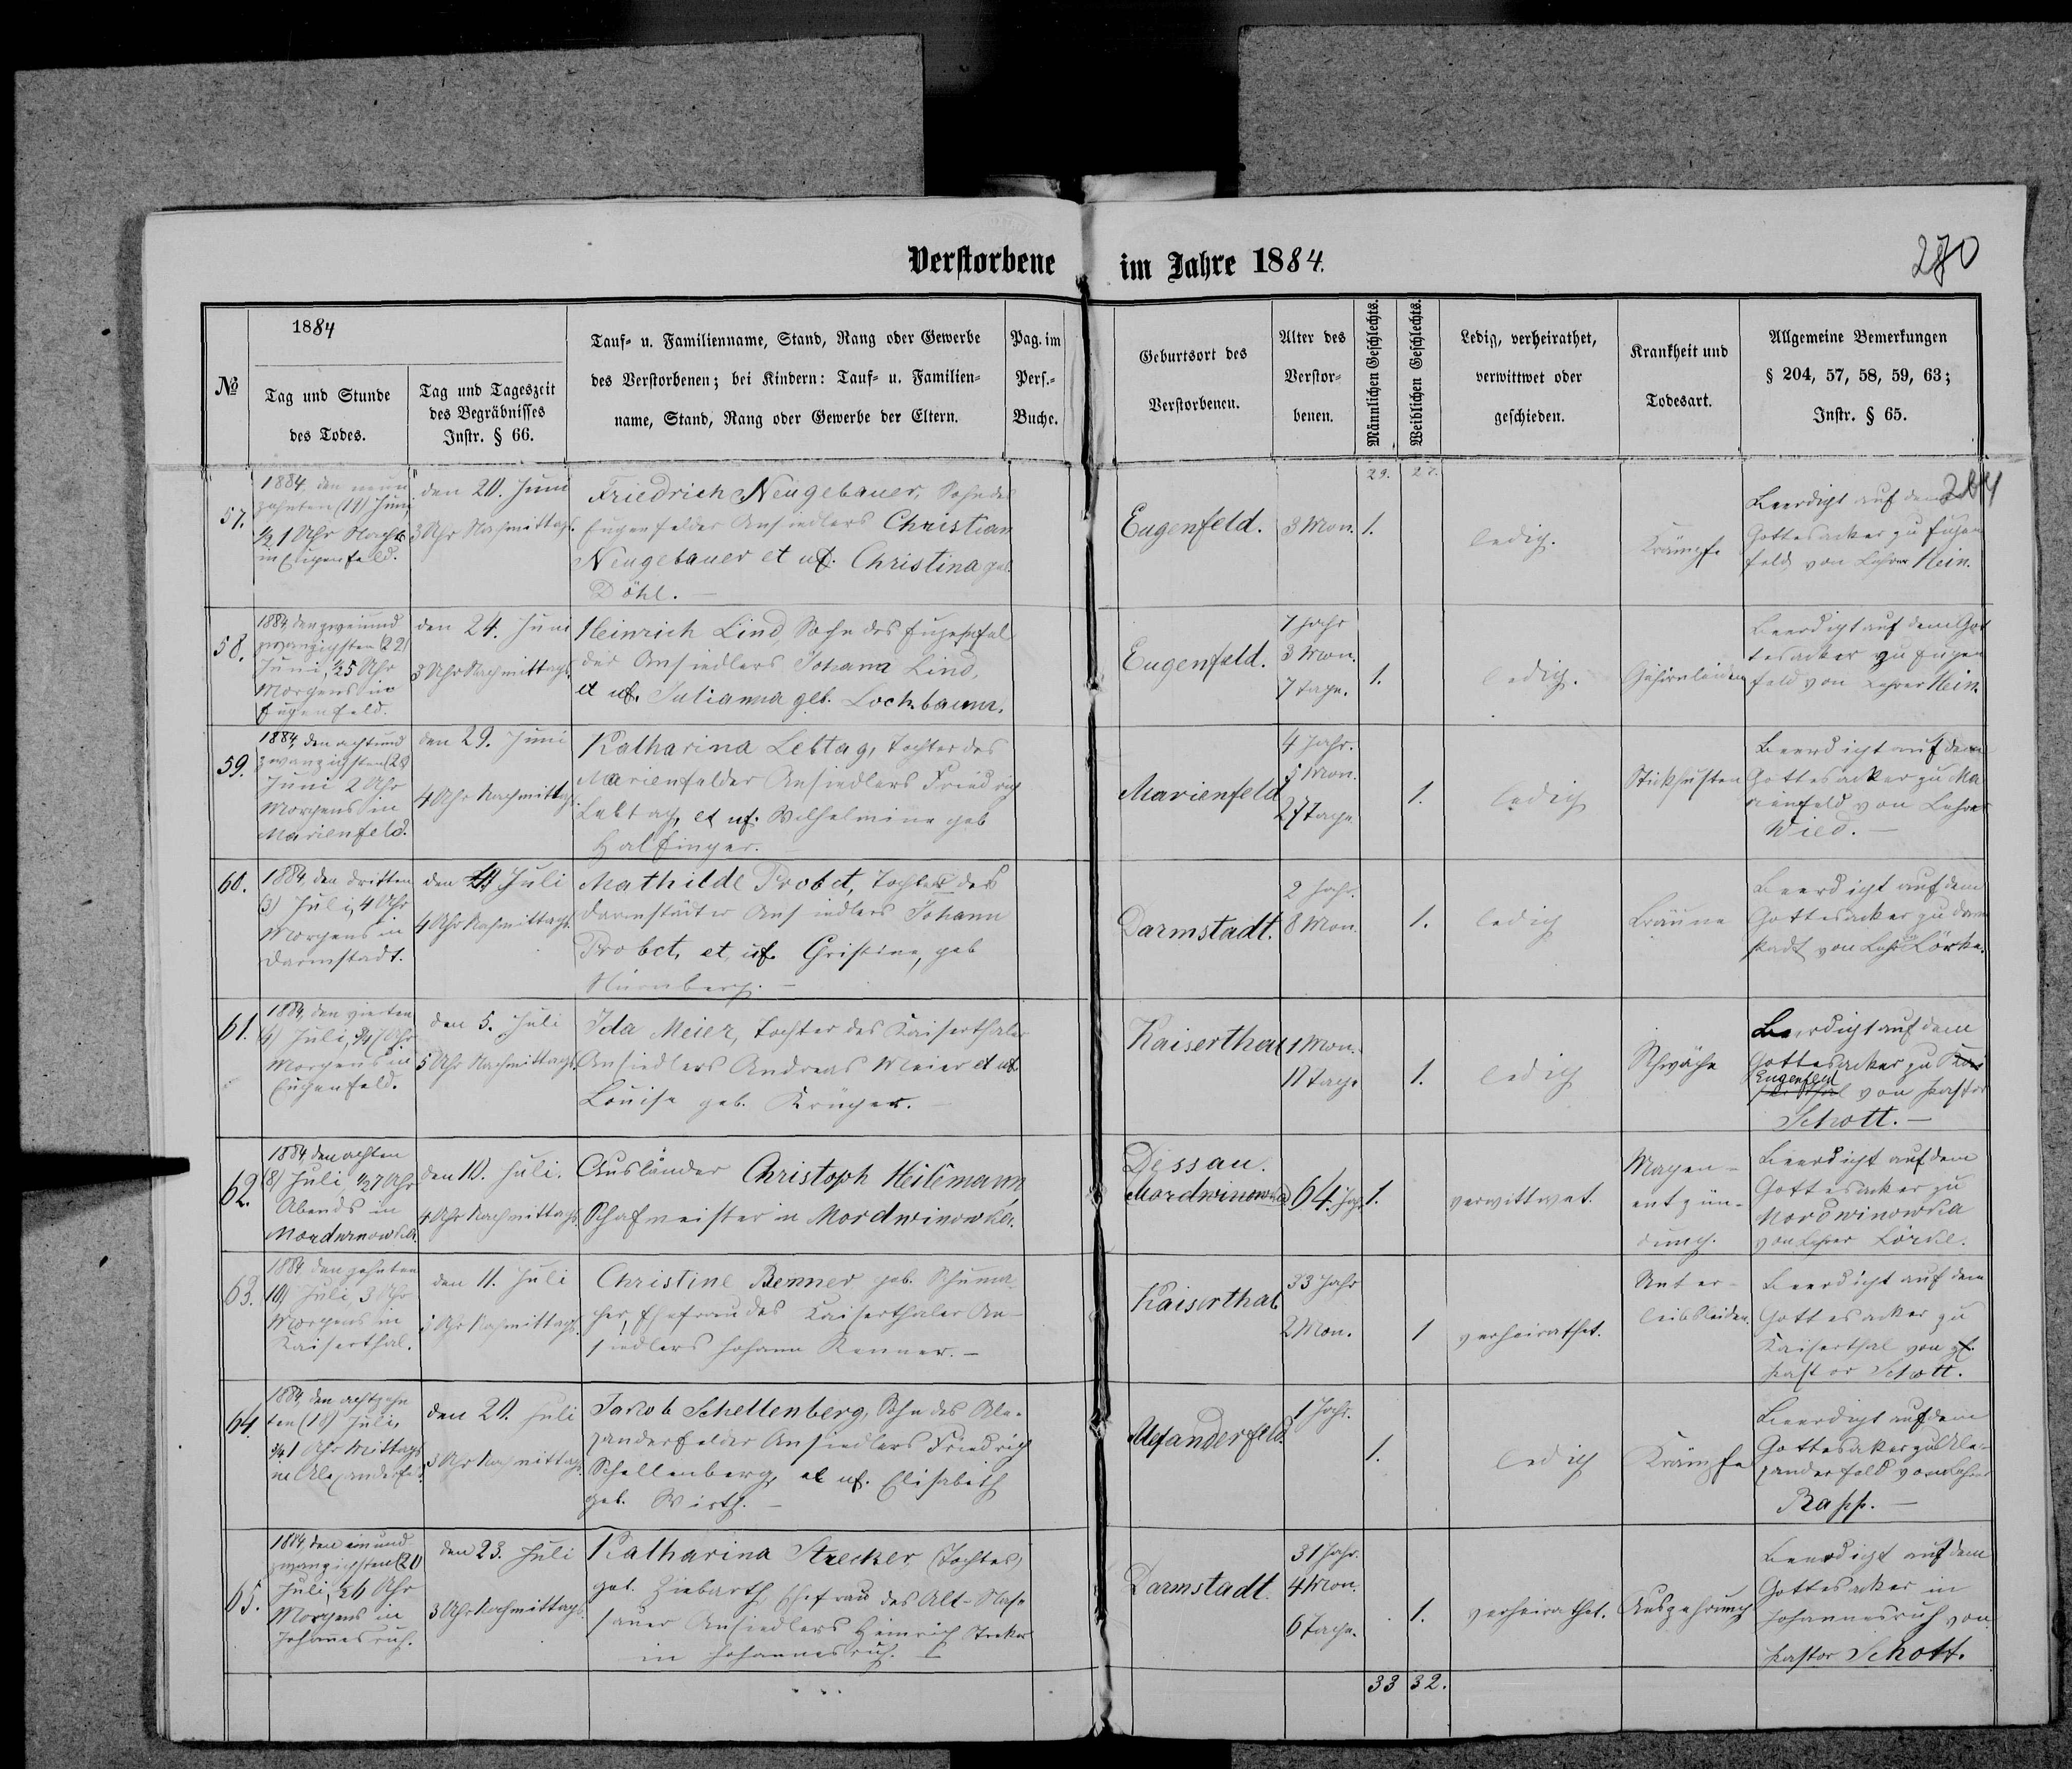 Verstorbene im Jahre 1884.
280
1884
№
Tag und Stunde
des Todes.
Tag und Tageszeit
des Begräbnisses
Instr. § 66.
Tauf- u. Familienname, Stand, Rang oder Gewerbe
des Verstorbenen; bei Kindern: Tauf- u. Familien-
name, Stand, Rang oder Gewerbe der Eltern.
Pag. im
Pers.-
Buche.
Geburtsort des
Verstorbenen.
Alter des
Verstor-
benen.
Männlichen Geschlechts.
Weiblichen Geschlechts.
Ledig, verheirathet,
verwittwet oder
geschieden.
Krankheit und
Todesart.
Allgemeine Bemerkungen
§ 204, 57, 58, 59, 63;
Instr. § 65.
29. 27.
264
57.
1884, den neun
zehnten (19) Juni
½ 1 Uhr Nachts
in Eugenfeld.
den 20. Juni
3 Uhr Nachmittags.
Friedrich Neugebauer, Sohn des
Eugenfelder Ansiedlers Christian
Neugebauer et ux. Christina geb.
Döhl. –
Eugenfeld.
3 Mon.
1.
ledig.
Krämpfe
Beerdigt auf dem
Gottesacker zu Eugen
feld von Lehrer Hein.
58.
1884, den zweiund
zwanzigsten (22)
Juni, ½5 Uhr
Morgens in
Eugenfeld.
den 24. Juni
3 Uhr Nachmittags.
Heinrich Lind, Sohn des Eugenfel
der Ansiedlers Johann Lind,
et ux. Julianna geb. Lochbaum.
Eugenfeld.
7 Jahr
3 Mon.
7 Tage.
1.
ledig.
Gehirnleiden
Beerdigt auf dem Got
tesacker zu Eugen
feld von Lehrer Hein.
59.
1884, den achtund
zwanzigsten (28)
Juni 2 Uhr
Morgens in
Marienfeld.
den 29. Juni
4 Uhr Nachmittags.
Katharina Lebtag, Tochter des
Marienfelder Ansiedlers Friedrich
Lebtag, et ux. Wilhelmine geb
Halfinger.
Marienfeld
4 Jahr.
5 Mon.
27 Tage
1.
ledig
Stickhusten
Beerdigt auf dem
Gottesacker zu Ma
rienfeld von Lehrer
Wied. –
60.
1884, den dritten
(3) Juli, 4 Uhr
Morgens in
Darmstadt.
den 4. Juli
4 Uhr Nachmittags.
Mathilde Probst, Tochter des
Darmstädter Ansiedlers Johann
Probst, et ux. Christine, geb
Nürnberg. –
Darmstadt.
2 Jahr.
8 Mon.
1.
ledig
Bräune
Beerdigt auf dem
Gottesacker zu Darm
stadt von Lehr. Lörke.
61.
1884, den vierten
(4) Juli, Uhr
Morgens in
Eugenfeld.
den 5. Juli
5 Uhr Nachmittags.
Ida Meier, Tochter des Kaiserthaler
Ansiedlers Andreas Meier et ux.
Louise geb. Krüger. –
Kaiserthal
1 Mon.
11 Tage
1.
ledig
Schwäche
Beerdigt auf dem
Gottesacker zu Kai
Eugenfeld
serthal von Pastor
Schott. –
62.
1884, den achten
(8) Juli, ½7 Uhr
Abends in
Mordwinowka.
den 10. Juli.
4 Uhr Nachmittags.
Ausländer Christoph Heilemann
Schafmeister in Mordwinowka.
Dessau.
Mordwinowka
64. Jahr
1.
verwittwet.
Magen-
entzün-
dung.
Beerdigt auf dem
Gottesacker zu
Mordwinowka
von Lehrer Lörke.
63.
1884, den zehnten
(10) Juli, 3 Uhr
Morgens in
Kaiserthal.
den 11. Juli
Uhr Nachmittags.
Christine Renner geb. Schuma-
cher, Ehefrau des Kaiserthaler An-
siedlers Johann Renner. –
Kaiserthal
33 Jahr
2 Mon.
1
verheirathet.
Unter-
leibsleiden.
Beerdigt auf dem
Gottesacker zu
Kaiserthal von
Pastor Schott.
64.
1884, den achtzehn
ten (18) Juli,
¾1 Uhr Mittags
in Alexanderfeld.
den 20. Juli
3 Uhr Nachmittags.
Jacob Schellenberg, Sohn des Ale-
xanderfelder Ansiedlers Friedrich
Schellenberg, et ux. Elisabeth
geb. Wirth. –
Alexanderfeld.
1 Jahr.
1.
ledig
Krämpfe
Beerdigt auf dem
Gottesacker zu Ale-
xanderfeld von Lehrer
Rapp. –
65.
1884, den einund
zwanzigsten (21)
Juli, ½6 Uhr
Morgens in
Johannesruh.
den 23. Juli
3 Uhr Nachmittags.
Katharina Strecker (Tochter)
geb. Ziebarth, Ehefrau des Alt-Nas-
sauer Ansiedlers Heinrich Streker
in Johannesruh.
Darmstadt.
31 Jahr.
4 Mon.
6 Tage.
1.
verheirathet.
Auszehrung
Beerdigt auf dem
Gottesacker in
Johannesruh von
Pastor Schott.
33 32.